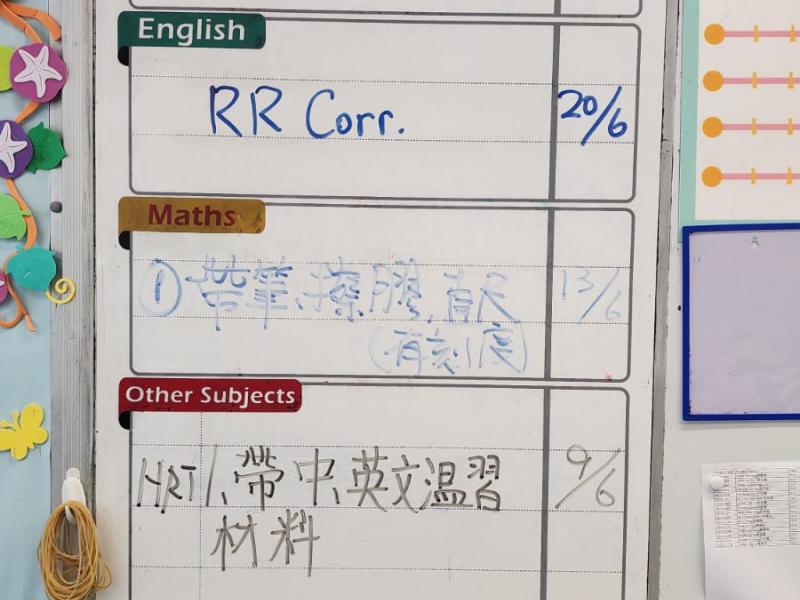 English
RR Corr. 20/6
Maths
① 帶筆、擦膠、直尺 13/6
(有刻度)
Other Subjects
HRT 1、帶中、英文溫習 9/6
材料